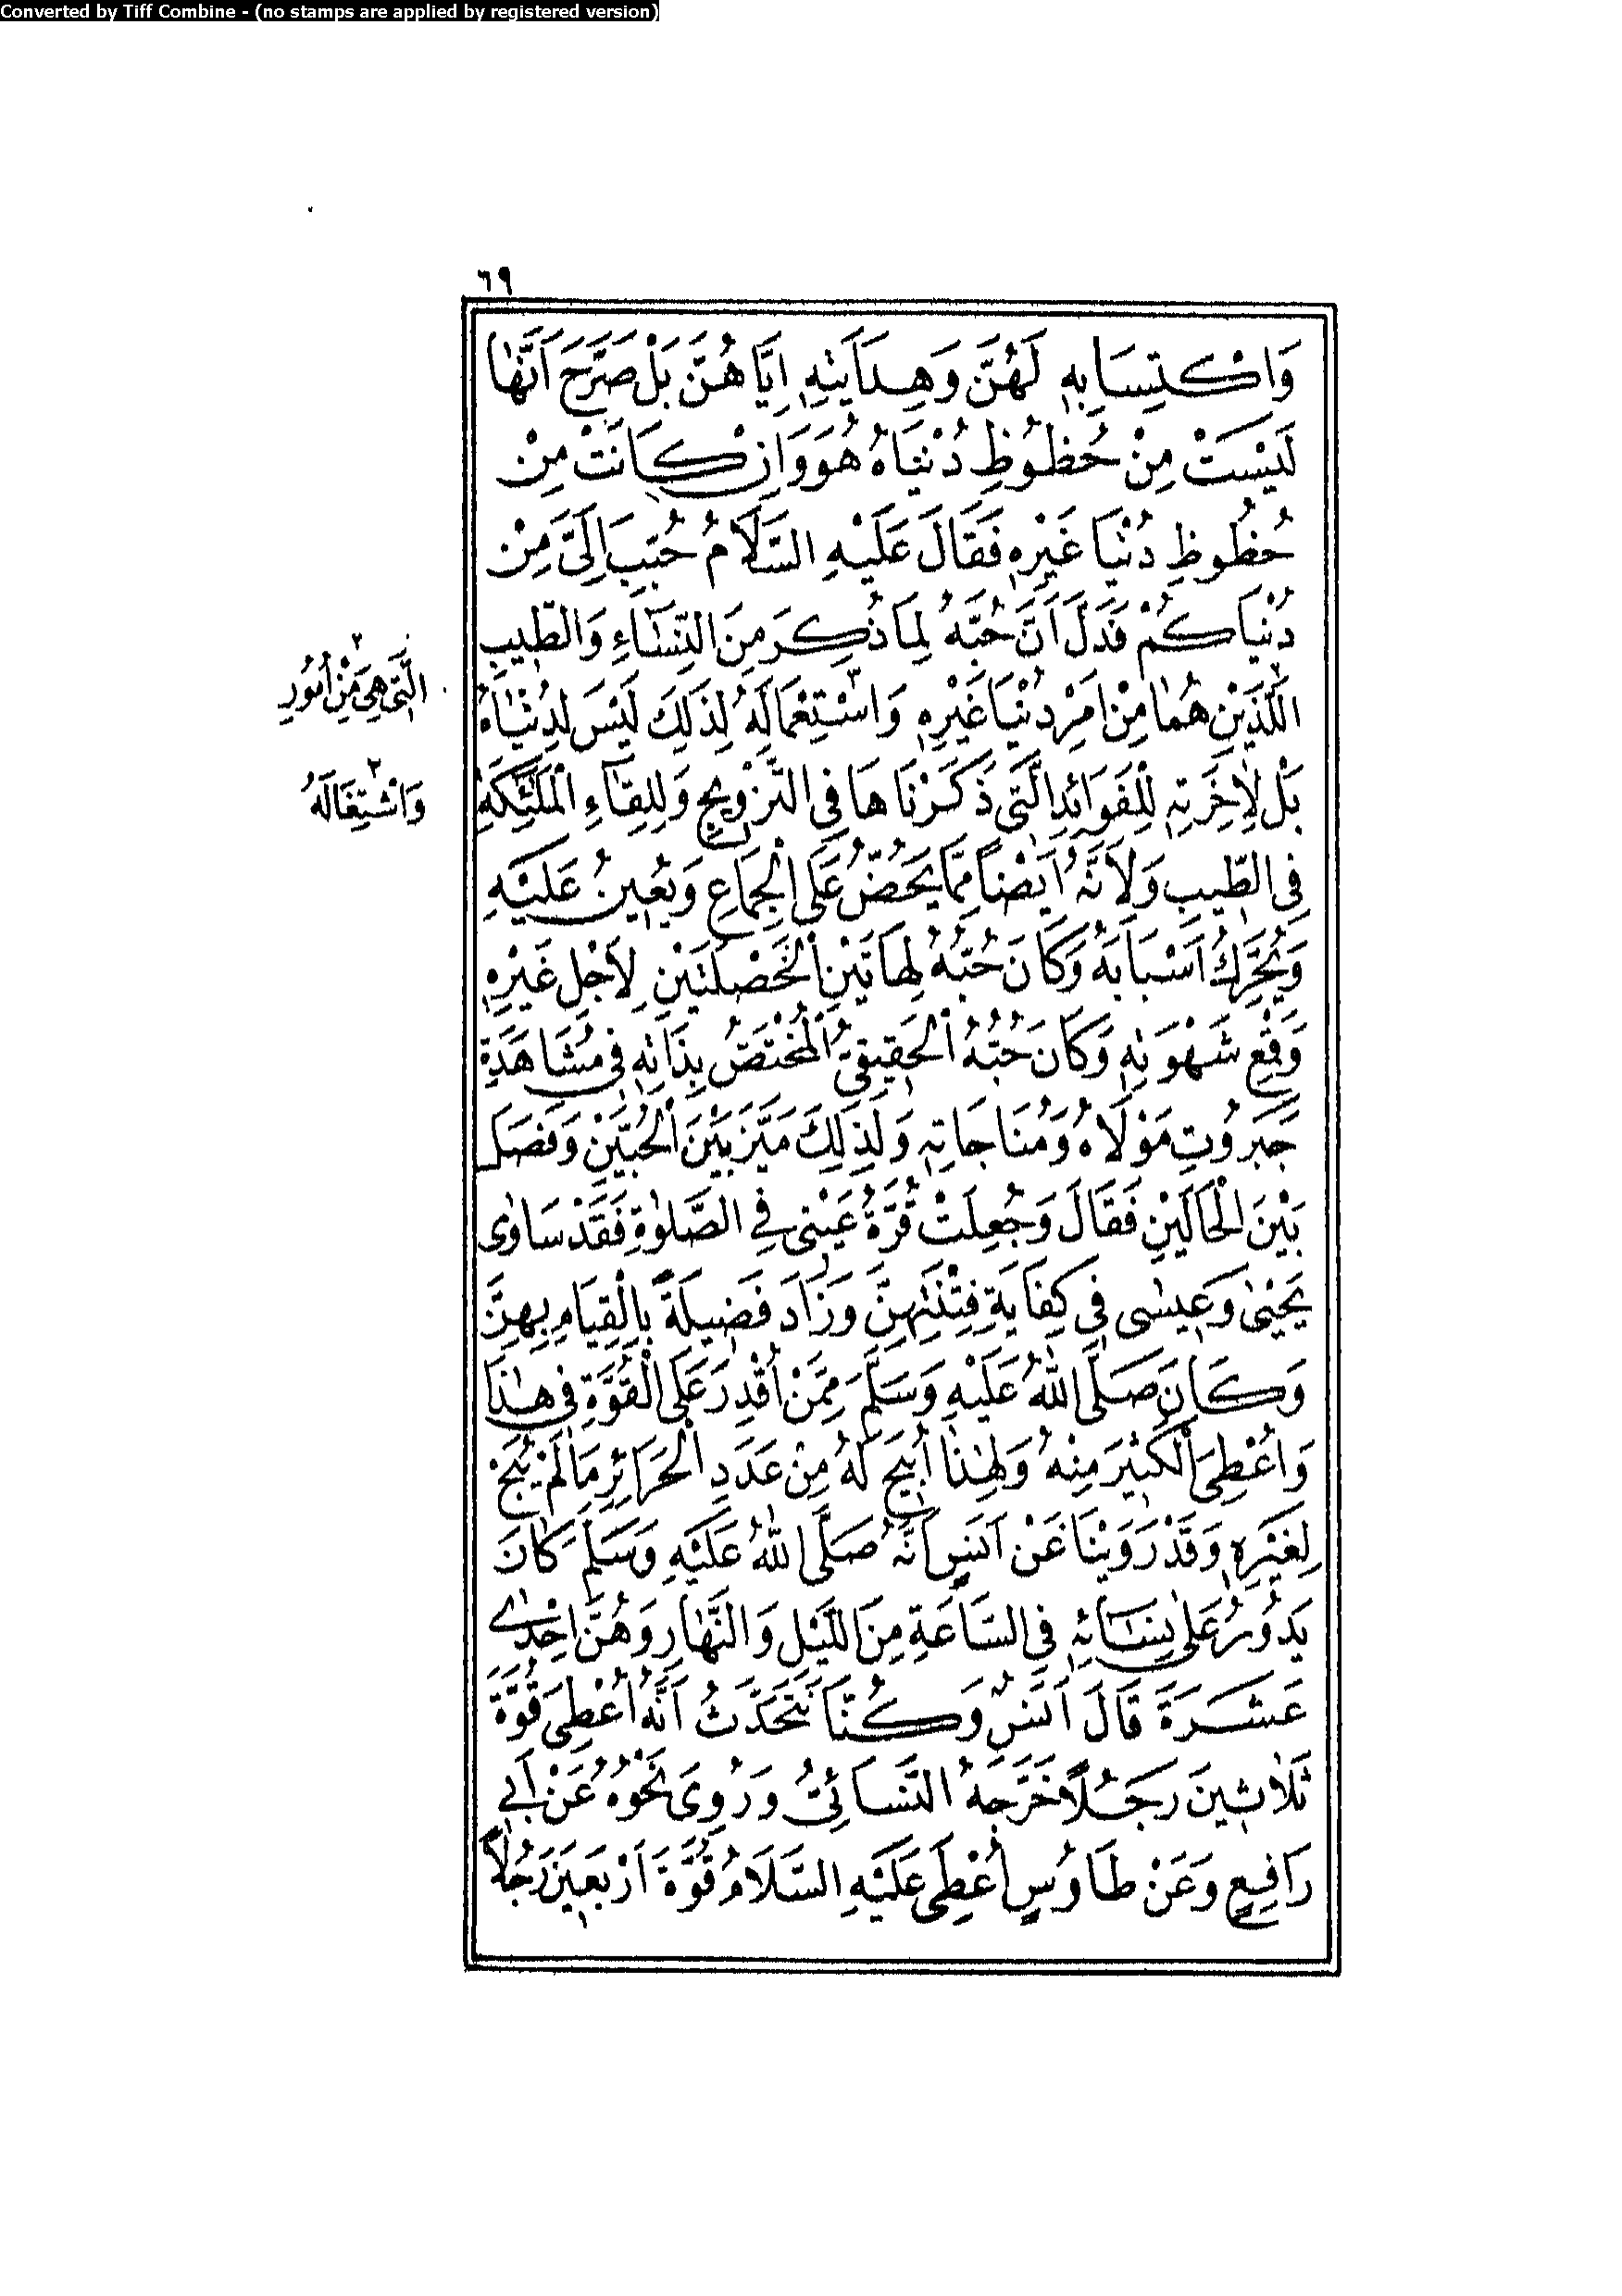 Converted by Tiff Combine - (no stamps are applied by registered version)
٦٩
وَاكْتِسَابِهِ لَهُنَّ وَهِدَايَتِهِ اِيَّاهُنَّ بَلْ صَرَّحَ اَنَّهَا
لَيْسَتْ مِنْ حُظُوظِ دُنْيَاهُ هُوَ وَاِنْ كَانَتْ مِنْ
حُظُوظِ دُنْيَا غَيْرِهِ فَقَالَ عَلَيْهِ السَّلَامُ حُبِّبَ اِلَيَّ مِنْ
دُنْيَاكُمْ فَدَلَّ اَنَّ حُبَّهُ لِمَا ذُكِرَ مِنَ النِّسَاءِ وَالطِّيبِ
اللَّذَيْنِ هُمَا مِنْ اَمْرِ دُنْيَا غَيْرِهِ وَاسْتِعْمَالَهُ لِذٰلِكَ لَيْسَ لِدُنْيَاهُ
بَلْ لِاٰخِرَتِهِ لِلْفَوَائِدِ الَّتِي ذَكَرْنَاهَا فِي التَّزْوِيجِ وَلِلِقَاءِ الْمَلٰئِكَةِ
فِي الطِّيبِ وَلِاَنَّهُ اَيْضًا مِمَّا يَحُضُّ عَلَى الْجِمَاعِ وَيُعِينُ عَلَيْهِ
وَيُحَرِّكُ اَسْبَابَهُ وَكَانَ حُبُّهُ لِهَاتَيْنِ الْخَصْلَتَيْنِ لِاَجْلِ غَيْرِهِ
وَقَمْعِ شَهْوَتِهِ وَكَانَ حُبُّهُ الْحَقِيقِيُّ الْمُخْتَصُّ بِذَاتِهِ فِي مُشَاهَدَةِ
جَبَرُوتِ مَوْلَاهُ وَمُنَاجَاتِهِ وَلِذٰلِكَ مَيَّزَ بَيْنَ الْحُبَّيْنِ وَفَصَلَ
بَيْنَ الْحَالَيْنِ فَقَالَ وَجُعِلَتْ قُرَّةُ عَيْنِي فِي الصَّلٰوةِ فَقَدْ سَاوٰى
يَحْيٰى وَعِيسٰى فِي كِفَايَةِ فِتْنَتِهِنَّ وَزَادَ فَضِيلَةً بِالْقِيَامِ بِهِنَّ
وَكَانَ صَلَّى اللهُ عَلَيْهِ وَسَلَّمَ مِمَّنْ اُقْدِرَ عَلَى الْقُوَّةِ فِي هٰذَا
وَاُعْطِيَ الْكَثِيرَ مِنْهُ وَلِهٰذَا اُبِيحَ لَهُ مِنْ عَدَدِ الْحَرَائِرِ مَا لَمْ يُبَحْ
لِغَيْرِهِ وَقَدْ رَوَيْنَا عَنْ اَنَسٍ اَنَّهُ صَلَّى اللهُ عَلَيْهِ وَسَلَّمَ كَانَ
يَدُورُ عَلَى نِسَائِهِ فِي السَّاعَةِ مِنَ اللَّيْلِ وَالنَّهَارِ وَهُنَّ اِحْدٰى
عَشَرَةَ قَالَ اَنَسٌ وَكُنَّا نَتَحَدَّثُ اَنَّهُ اُعْطِيَ قُوَّةَ
ثَلَاثِينَ رَجُلًا خَرَّجَهُ النَّسَائِيُّ وَرُوِيَ نَحْوُهُ عَنْ اَبِي
رَافِعٍ وَعَنْ طَاوُسٍ اُعْطِيَ عَلَيْهِ السَّلَامُ قُوَّةَ اَرْبَعِينَ رَجُلًا
٢
الَّتِي هِيَ مِنْ اُمُورِ
٢
وَاشْتِغَالَهُ